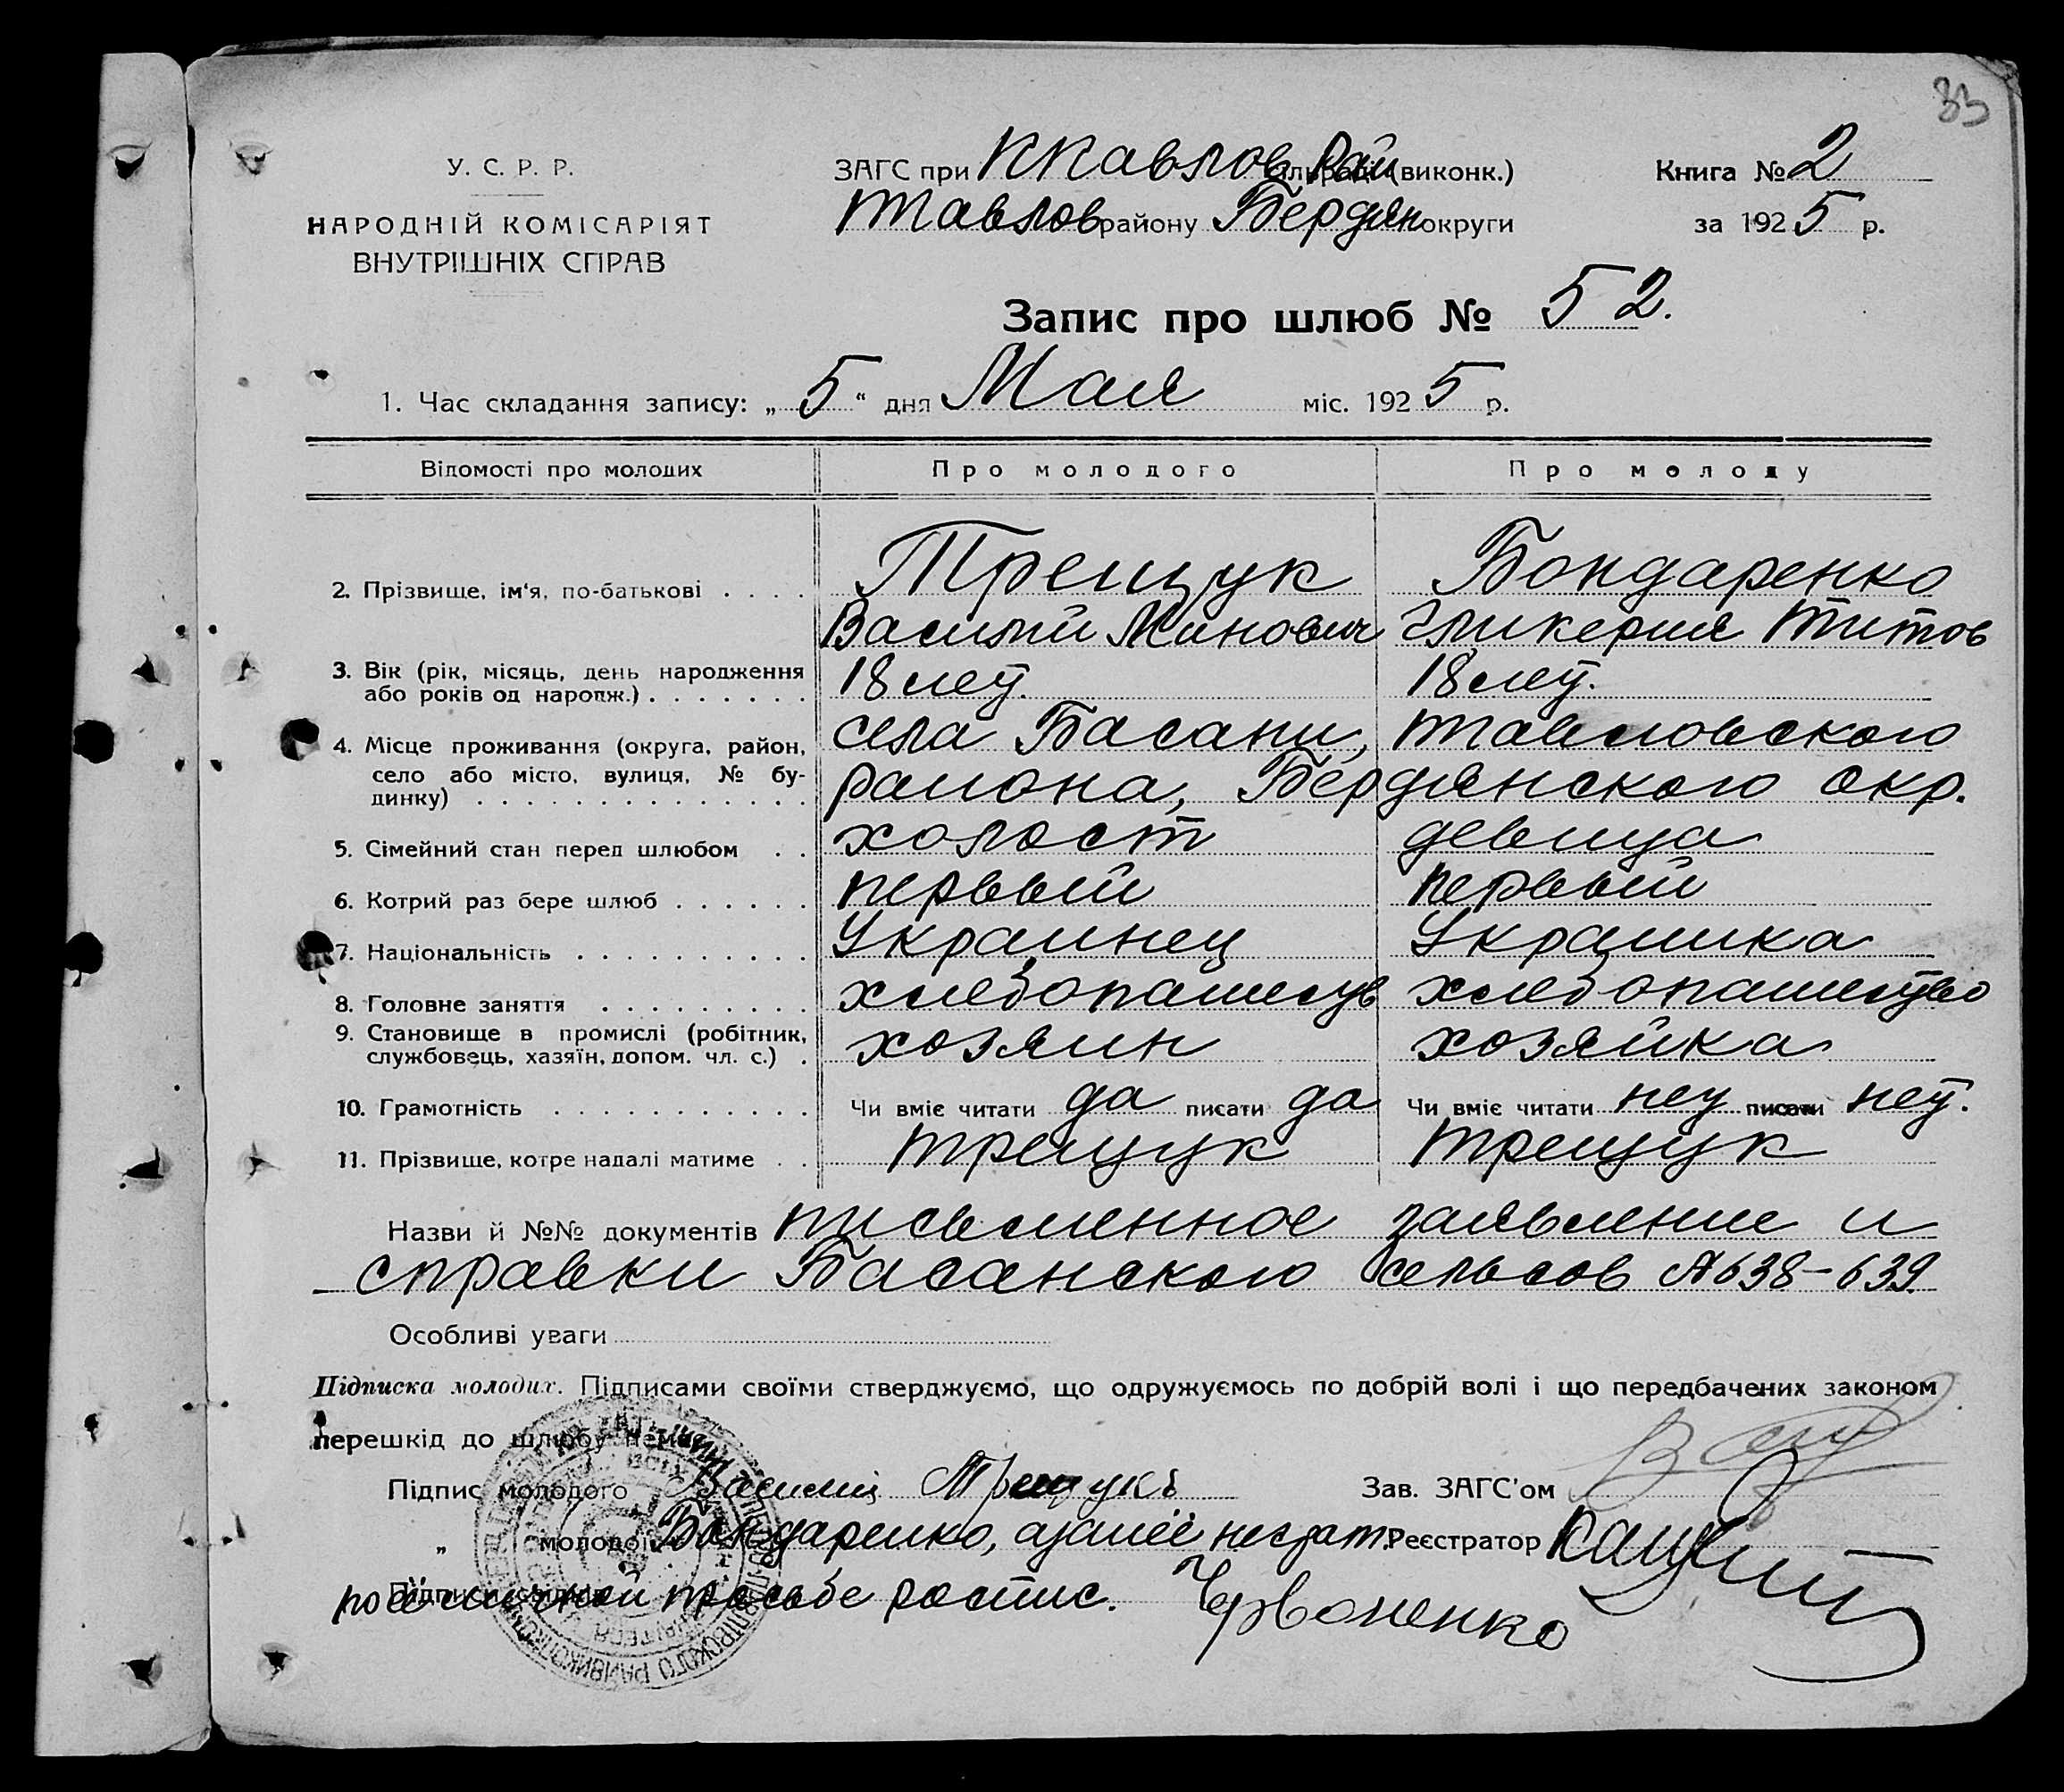 33
У. С. Р. Р.
НАРОДНІЙ КОМІСАРІЯТ
ВНУТРІШНІХ СПРАВ
ЗАГС при Павлов Рай (виконк.)
Павлов району Бердян округи
Книга № 2
за 1925 р.
Запис про шлюб № 52.
1. Час складання запису: „5“ дня Мая міс. 1925 р.
Відомості про молодих Про молодого Про молоду
2. Прізвище, ім'я, по-батькові . . . . Трещук Бондаренко
Василий Минович Гликерия Титов
3. Вік (рік, місяць, день народження
або років од народж.) . . . . . . . 18 лет. 18 лет.
4. Місце проживання (округа, район,
село або місто, вулиця, № бу-
динку) . . . . . . . . . . . . . .
села Басани, Павловского
района, Бердянского окр.
5. Сімейний стан перед шлюбом . . холост девица
6. Котрий раз бере шлюб . . . . . . первый первый
7. Національність . . . . . . . . . . Украинец Украинка
8. Головне заняття . . . . . . . . . хлебопашеств хлебопашество
9. Становище в промислі (робітник,
службовець, хазяїн, допом. чл. с.) . хозяин хозяйка
10. Грамотність . . . . . . . . . . . Чи вміє читати да писати да Чи вміє читати нет писати нет.
11. Прізвище, котре надалі матиме . . Трещук Трещук
Назви й №№ документів письменное заявление и
справки Басанского сельсов № 638-639.
Особливі уваги
Підписка молодих. Підписами своїми стверджуємо, що одружуємось по добрій волі і що передбачених законом
перешкід до шлюбу немає.
Підпис молодого Василий Трещукъ Зав. ЗАГС'ом
„ молодої Бондаренко, а за неё неграмот. Реєстратор
по её личной просьбе роспис. Червоненко
Підписи свідків